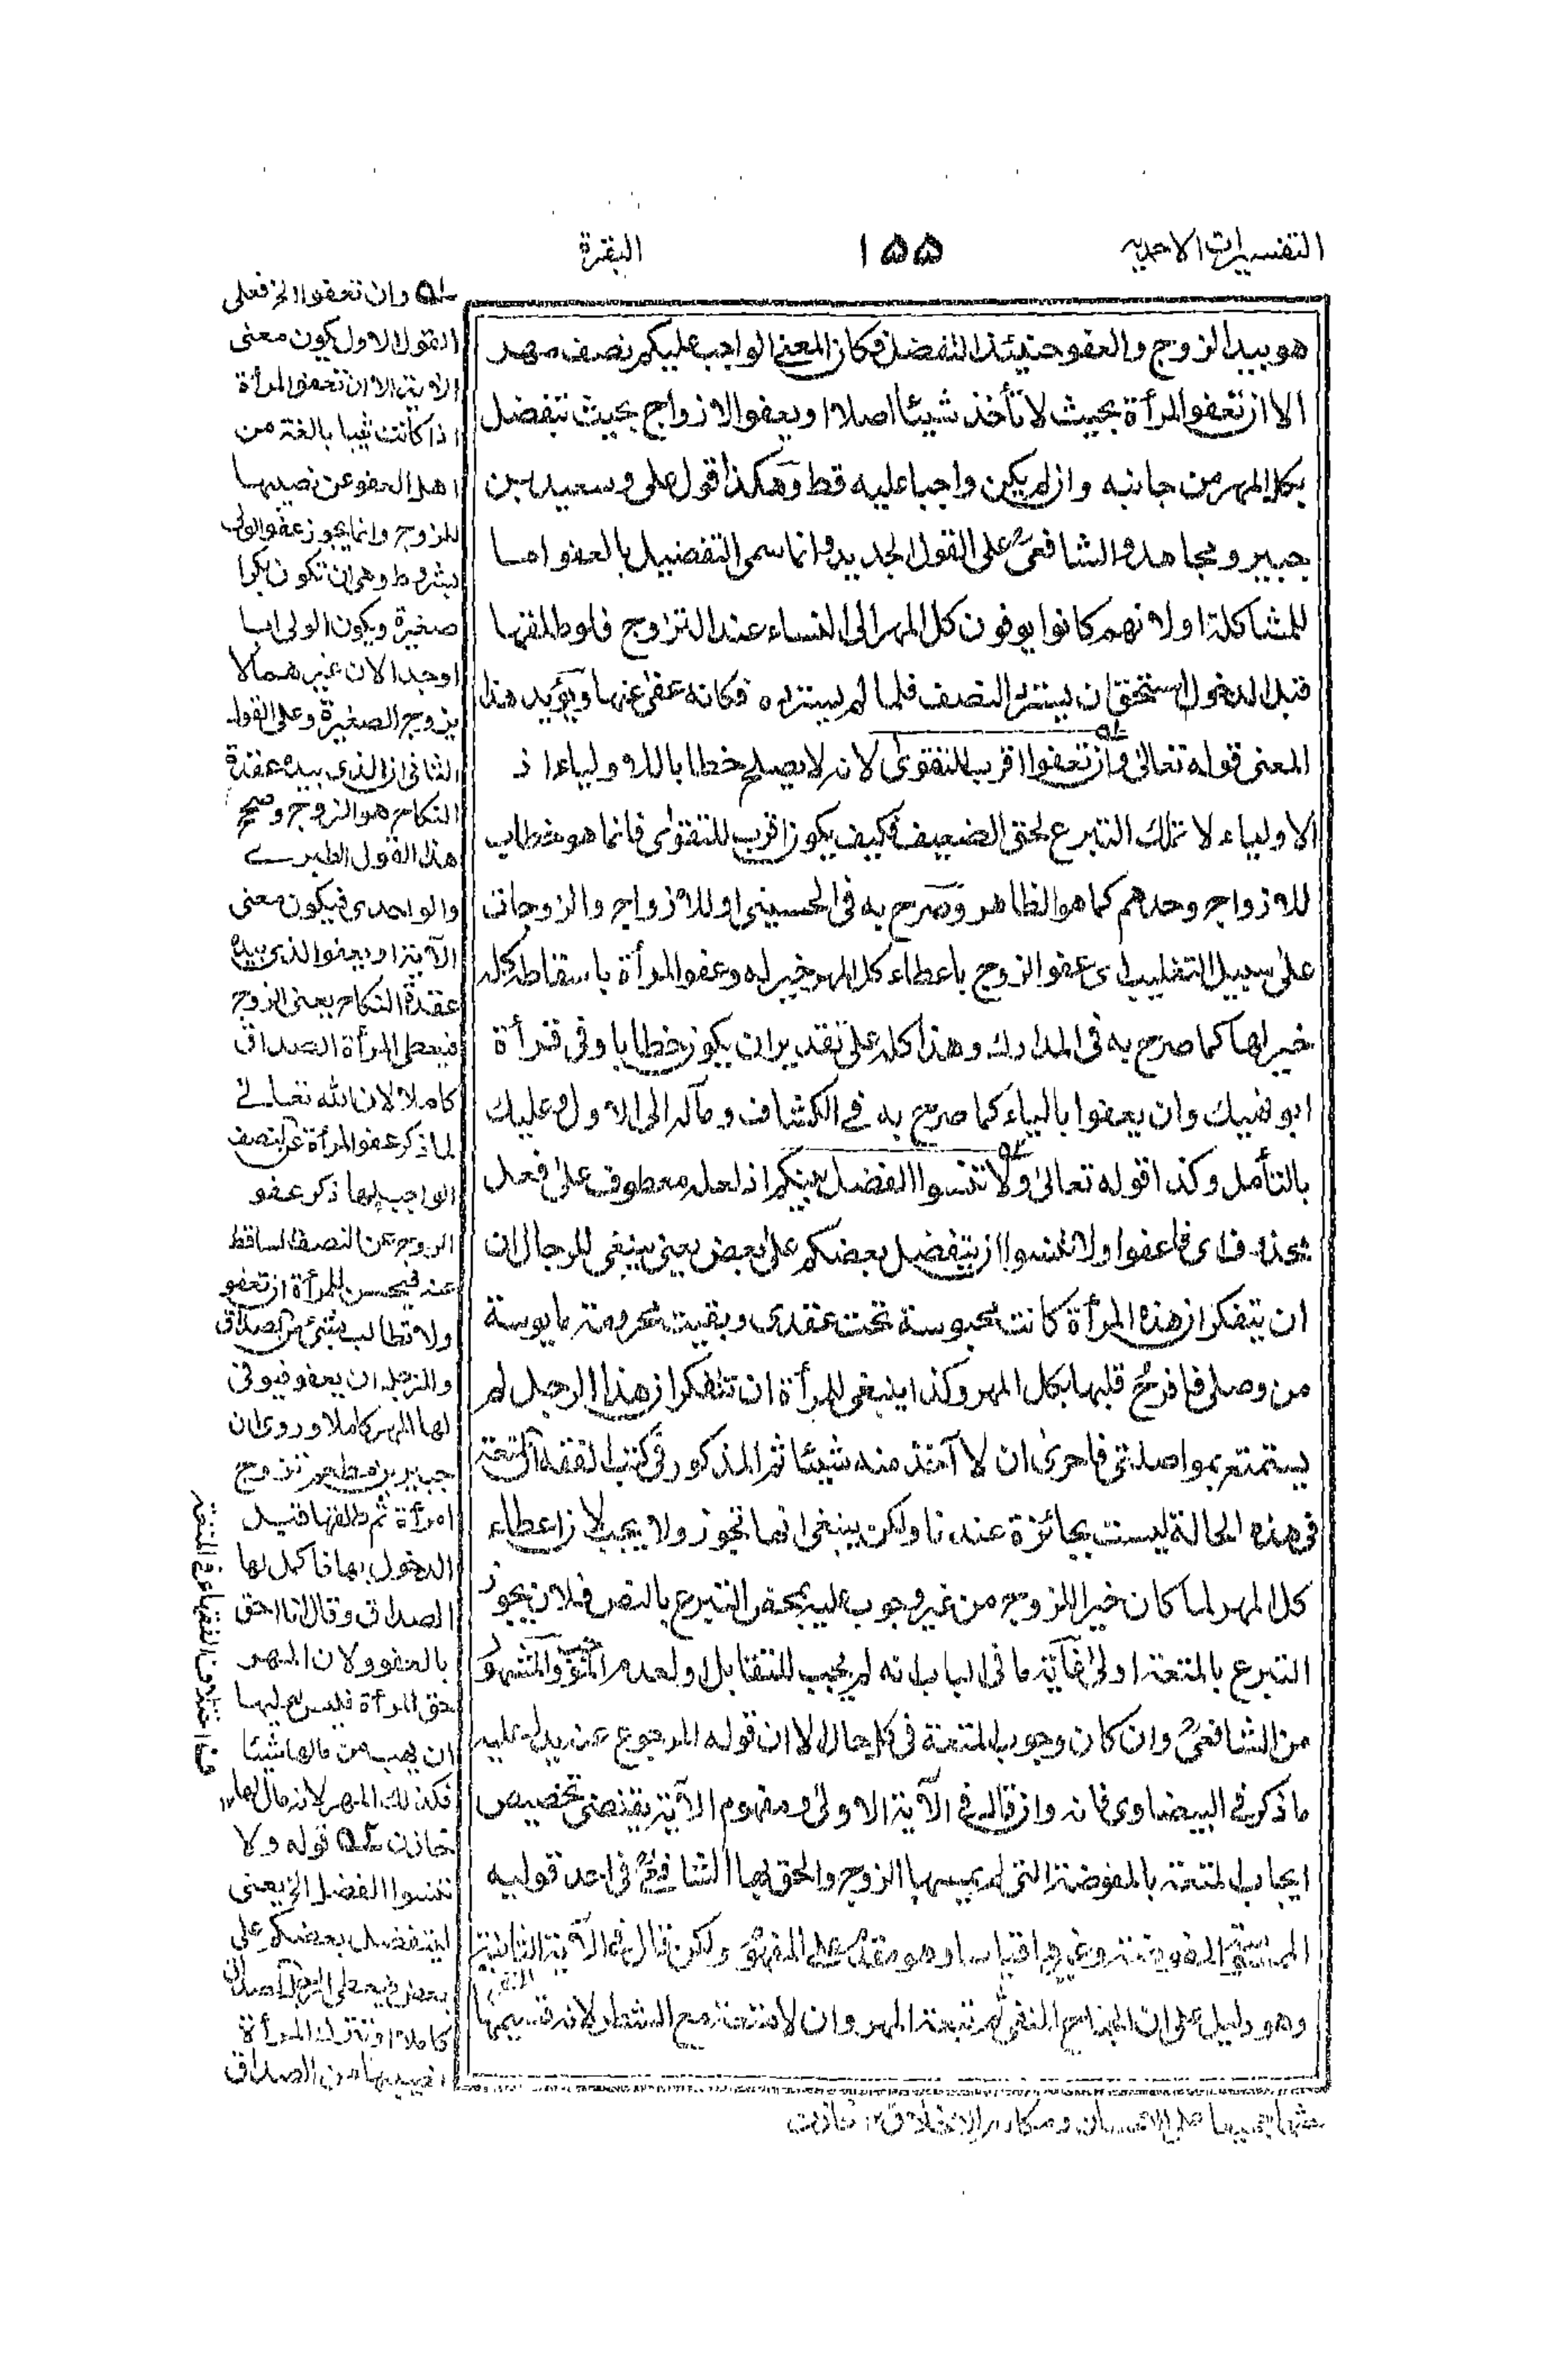 التفسيرات الاحمديه
١٥٥
البقرة
هو بيد الزوج والعفو حينئذ التفضل فكان المعنى الواجب عليكم نصف مهر
الا ان تعفو المرأة بحيث لا تأخذ شيئا اصلا او يعفو الازواج بحيث تتفضل
بكل المهر من جانبه وان لم يكن واجبا عليه قط وهكذا قول على وسعيد بن
جبير ومجاهد والشافعىؒ على القول الجديد وانما سمى التفضيل بالعفو اما
للمشاكلة او لانهم كانوا يوفون كل المهر الى النساء عند التزاوج فلو طلقها
قبل الدخول استحق ان يسترد النصف فلما لم يسترده فكانه عفى عنها ويؤيد هذا
المعنى قوله تعالى وان تعفوا اقرب للتقوى لانه لا يصلح خطابا للاولياء اذ
الاولياء لا تملك التبرع لحق الضعيف فكيف يكون اقرب للتقوى فانما هو خطاب
للازواج وحدهم كما هو الظاهر وصرح به فى الحسينى او للازواج والزوجات
على سبيل التغليب اى عفو الزوج باعطاء كل المهر خير له وعفو المرأة باسقاط كله
خير لها كما صرح به فى المدارك وهذا كله على تقدير ان يكون خطابا وفى قرأة
ابو نهيك وان يعفوا بالياء كما صرح به فى الكشاف ومآله الى الاول وعليك
بالتأمل وكذا قوله تعالى ولا تنسوا الفضل بينكم اذ لعله معطوف على فعل
محذوف اى فاعفوا ولا تنسوا ان يتفضل بعضكم على بعض يعنى ينبغى للرجال ان
ان يتفكر ان هذه المرأة كانت محبوسة تحت عقدى وبقيت محرومة مايوسة
من وصلى فافرح قلبها بكل المهر وكذا ينبغى للمرأة ان تتفكر ان هذا الرجل لم
يستمتع بمواصلتى فاحرى ان لا آخذ منه شيئا ثم المذكور فى كتب الفقه ان المتعة
فى هذه الحالة ليست بجائزة عندنا ولكن ينبغى انها تجوز ولا يجب لان اعطاء
كل المهر لما كان خيرا للزوج من غير وجوب عليه بمحض التبرع بالنص فلان يجوز
التبرع بالمتعة اولى غاية ما فى الباب انه لم يجب للتقابل ولعدم والمشهور
من الشافعىؒ وان كان وجوب المتعة فى كل حال الا ان قوله المرجوع عنه يدل عليه
ما ذكر فى البيضاوى فانه وان قال فى الآية الاولى ومفهوم الآية يقتضى تخصيص
ايجاب المتعة بالمفوضة التى لم يمسها الزوج والحق بها الشافعىؒ فى احد قوليه
الممسوسة المفوضة وغيرها قياسا وهو مقدم على المفهوم ولكن قال فى الآية الثانية
وهو دليل على ان الجناح المنفى ثمه تبعة المهر وان لا متعة مع الشطر لانه قسيمها
٥١ وان تعفوا الخ فعلى
القول الاول يكون معنى
الآية الا ان تعفو المرأة
اذا كانت ثيبا بالغة من
اهل العفو عن نصيبها
للزوج وانما يجوز عفو الولى
بشروط وهى ان تكون بكرا
صغيرة ويكون الولى ابا
او جدا لان غيرهما لا
يزوج الصغيرة وعلى القول
الثانى ان الذى بيده عقدة
النكاح هو الزوج وصحح
هذا القول الطبرى
والواحدى فيكون معنى
الآية او يعفو الذى بيده
عقدة النكاح يعنى الزوج
فيعطى المرأة الصداق
كاملا لان الله تعالى
لما ذكر عفو المرأة عن النصف
الواجب لها ذكر عفو
الزوج عن النصف الساقط
عنه فيحسن للمرأة ان تعفو
ولا تطالب بشئ من الصداق
وللرجل ان يعفو فيوفى
لها المهر كاملا وروى ان
جبير بن مطعم تزوج
امرأة ثم طلقها قبل
الدخول بها فاكمل لها
الصداق وقال انا احق
بالعفو ولان المهر
حق المرأة فليس لوليها
ان يهب من مالها شيئا
فكذلك المهر لانه مال لها ١٢
خازن ٥٢ قوله ولا
تنسوا الفضل الخ يعنى
ليتفضل بعضكم على
بعض فيعطى الرجل الصداق
كاملا او تترك المرأة
نصيبها من الصداق
حثهما جميعا على الاحسان ومكارم الاخلاق ١٢ خازن